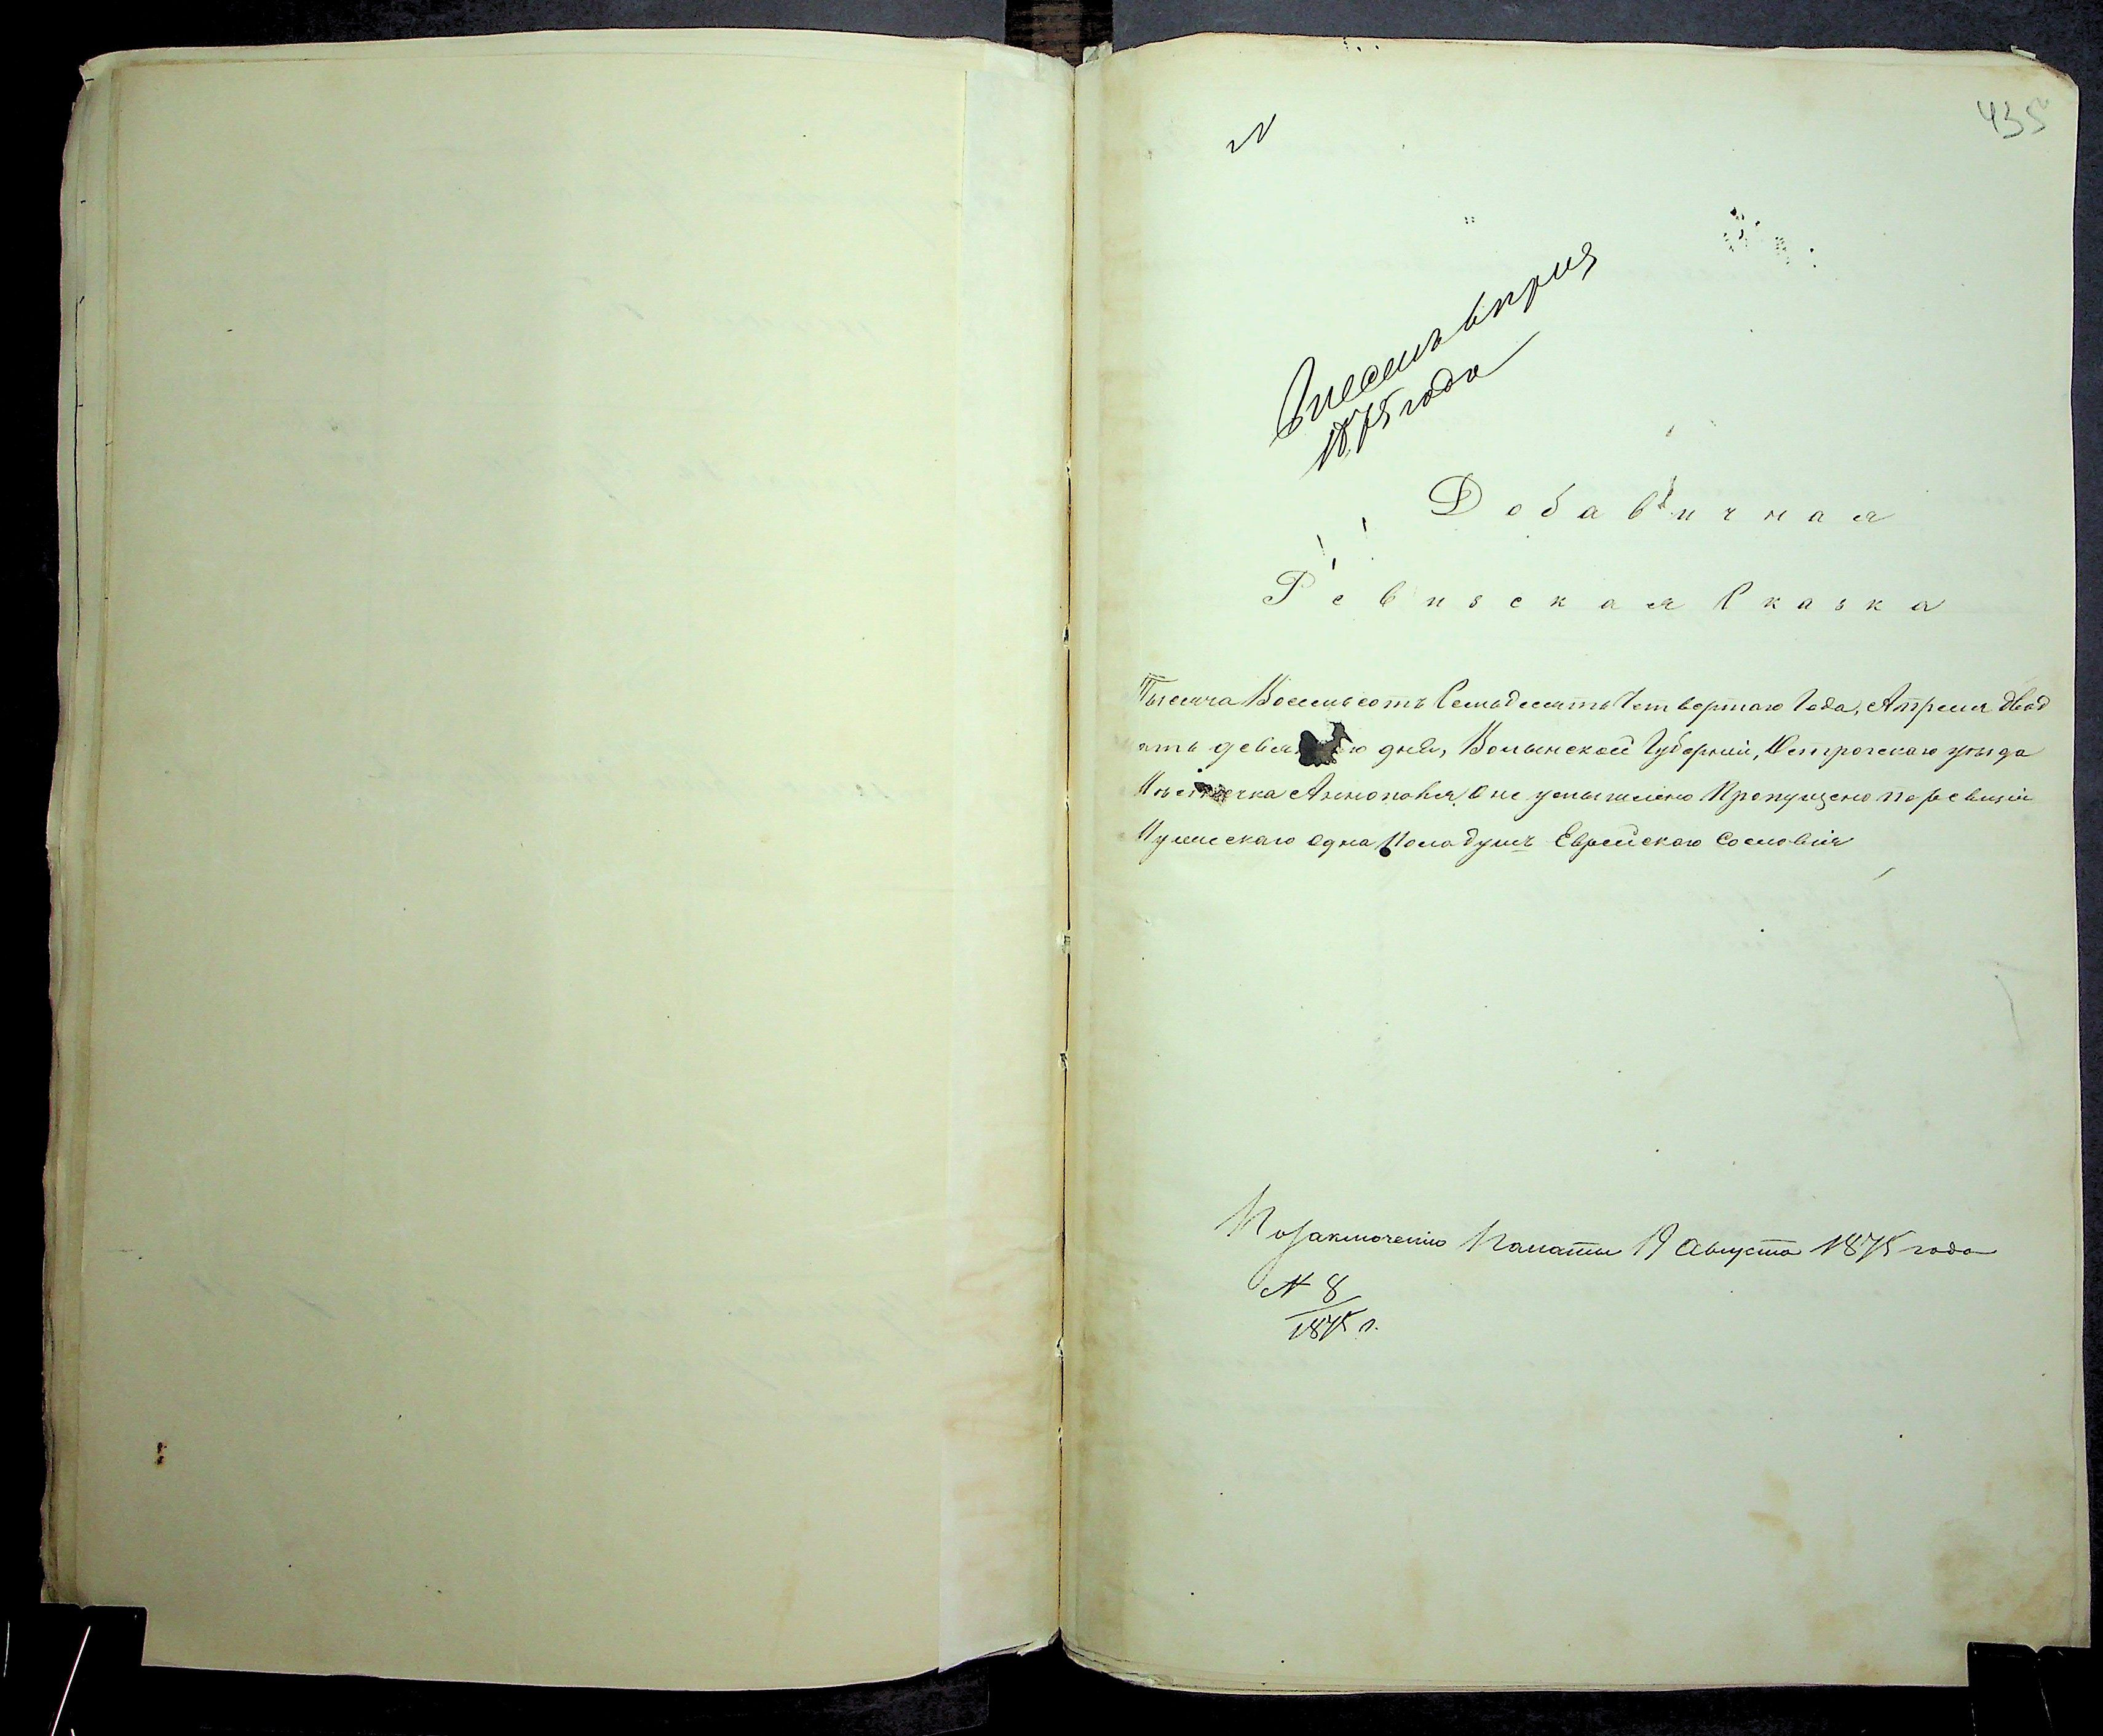 435
N
Внесенъ въ прил
1875 года
Добавичная
Ревизская Сказка
Тысяча Восемьсотъ Семьдесятъ Четвертаго Года, Апреля двад
ять девя го дня, Волынской Губерніи, Острогскаго уезда
Местечка Аннополя, О не умышлено Пропущено по ревизіи
Мужескаго одна Пола душъ Еврейскаго Сословія
По заключенію Палаты 19 Августа 1875 года
N 8
1875 г.